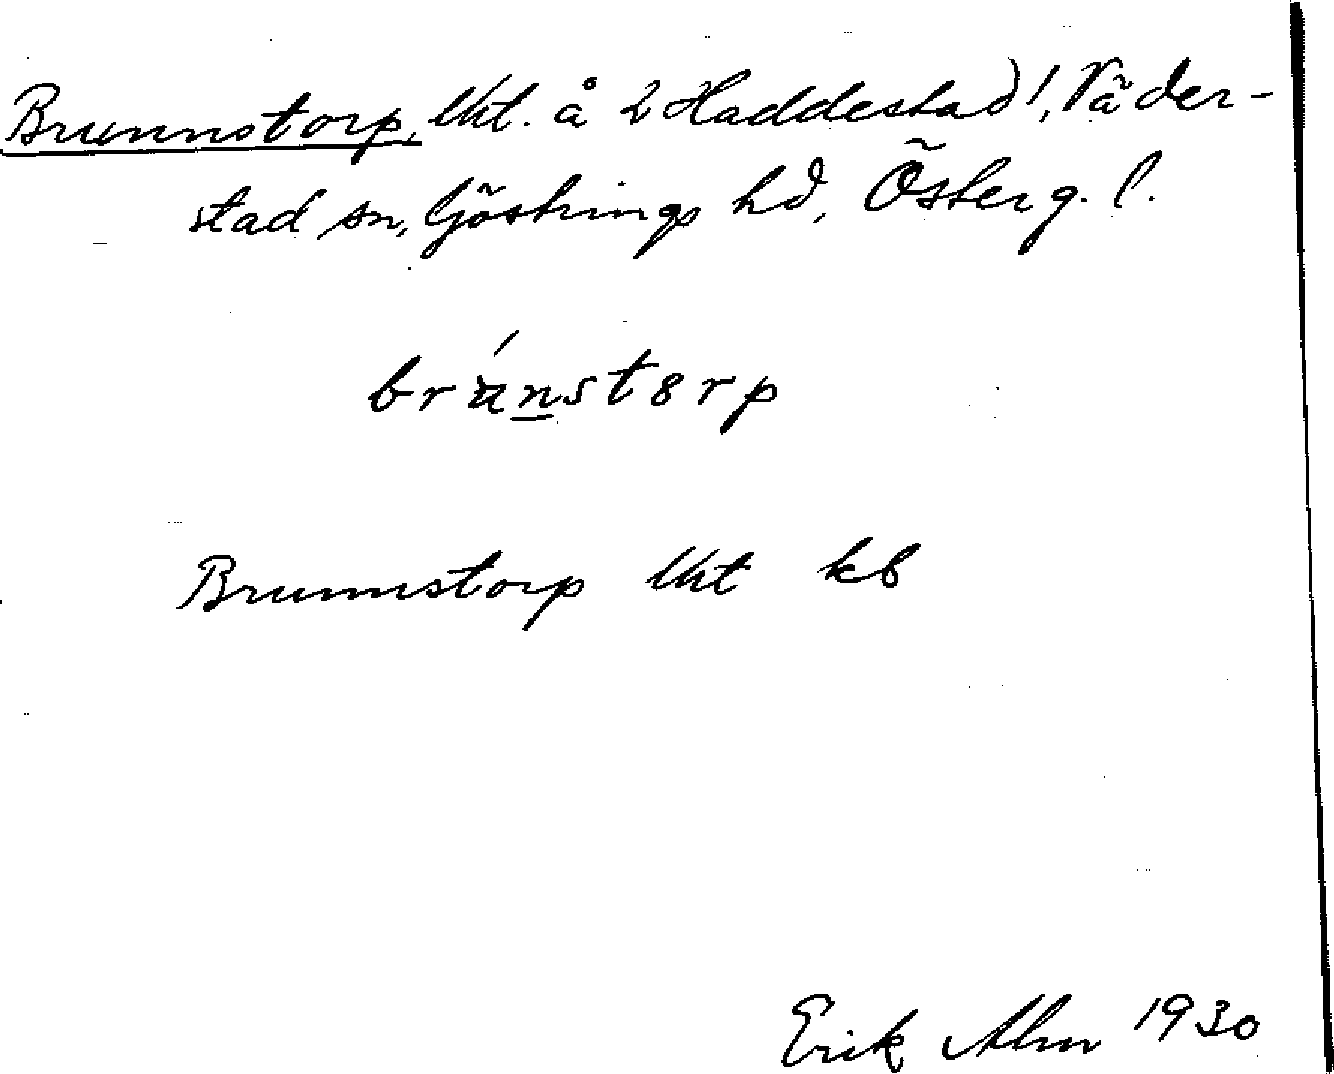 Brunnstorp, lht. å 2 Haddestad!, Väder-
stad sn, Göstrings hd, Österg. l.
brúnstorp
Brunnstorp lht kb
Erik Alm 1930